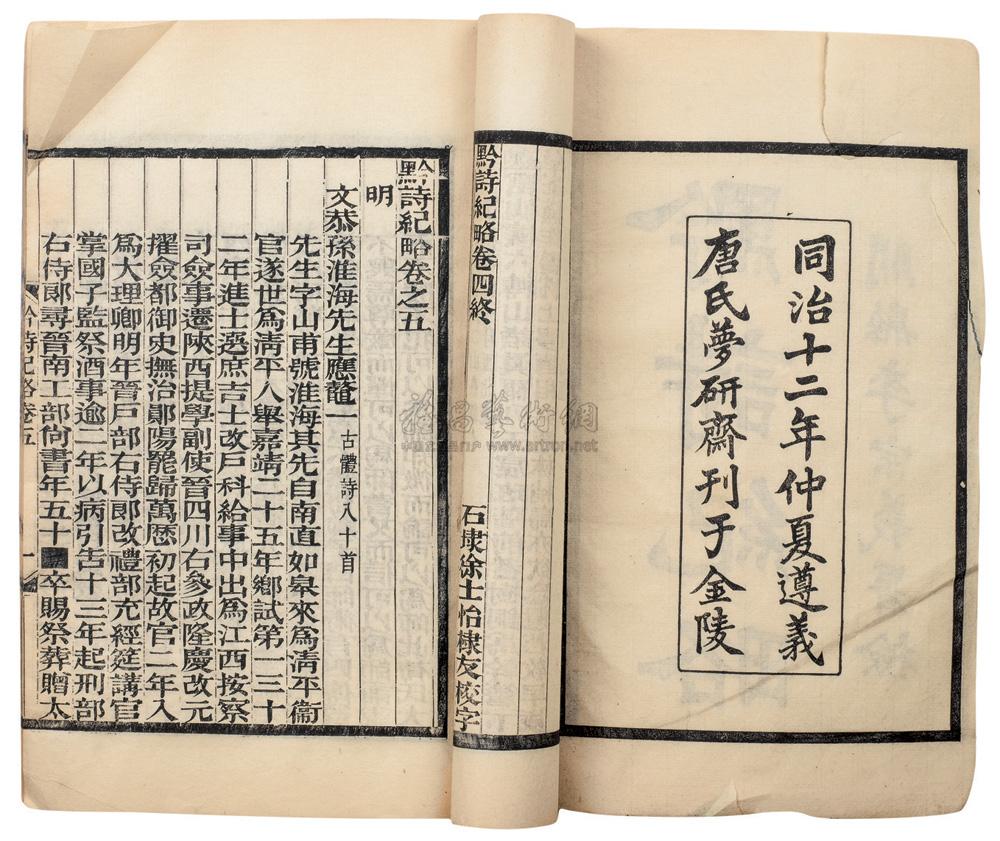 同治十二年仲夏遵義
唐氏夢研齋刊于金陵
黔詩紀略卷四終
石埭徐士怡棣友校字
黔詩紀略卷之五
明
文恭孫淮海先生應鼇一 古體詩八十首
先生字山甫號淮海其先自南直如皋來爲淸平衞
官遂世爲淸平人舉嘉靖二十五年鄉試第一三十
二年進士選庶吉士改戶科給事中出爲江西按察
司僉事遷陝西提學副使晉四川右參政隆慶改元
擢僉都御史撫治鄖陽罷歸萬歷初起故官二年入
爲大理卿明年晉戶部右侍郎改禮部充經筵講官
掌國子監祭酒事逾二年以病引告十三年起刑部
右侍郞尋晉南工部尙書年五十 卒賜祭葬贈太
黔詩紀略卷五
一
www.artron.net